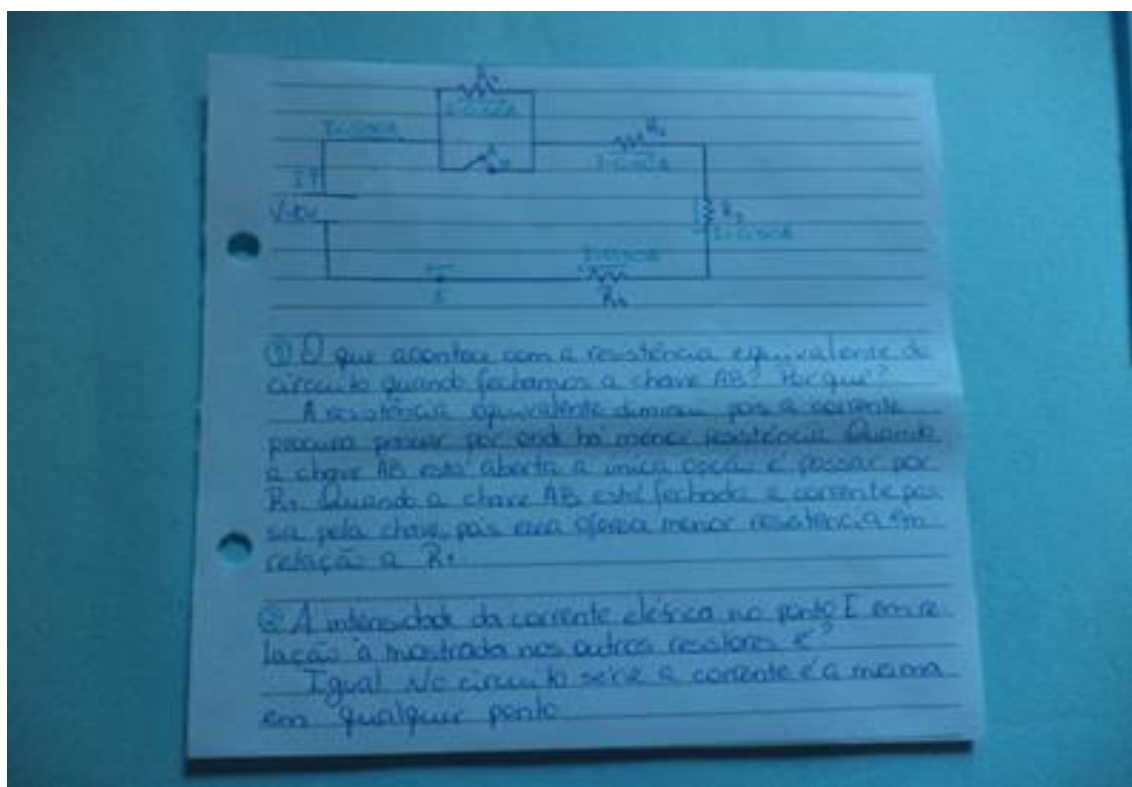 R₂
R₃
① O que acontece com a resistência equivalente do
circuito quando fechamos a chave AB? Por que?
A resistência equivalente diminui pois a corrente
procura passar por onde há menor resistência. Quando
a chave AB está aberta a única opção é passar por
R₁. Quando a chave AB está fechada a corrente pas
sa pela chave, pois essa oferece menor resistência em
relação a R₁.
② A intensidade da corrente elétrica no ponto E em re
lação à mostrada nos outros resistores é?
Igual. No circuito série a corrente é a mesma
em qualquer ponto